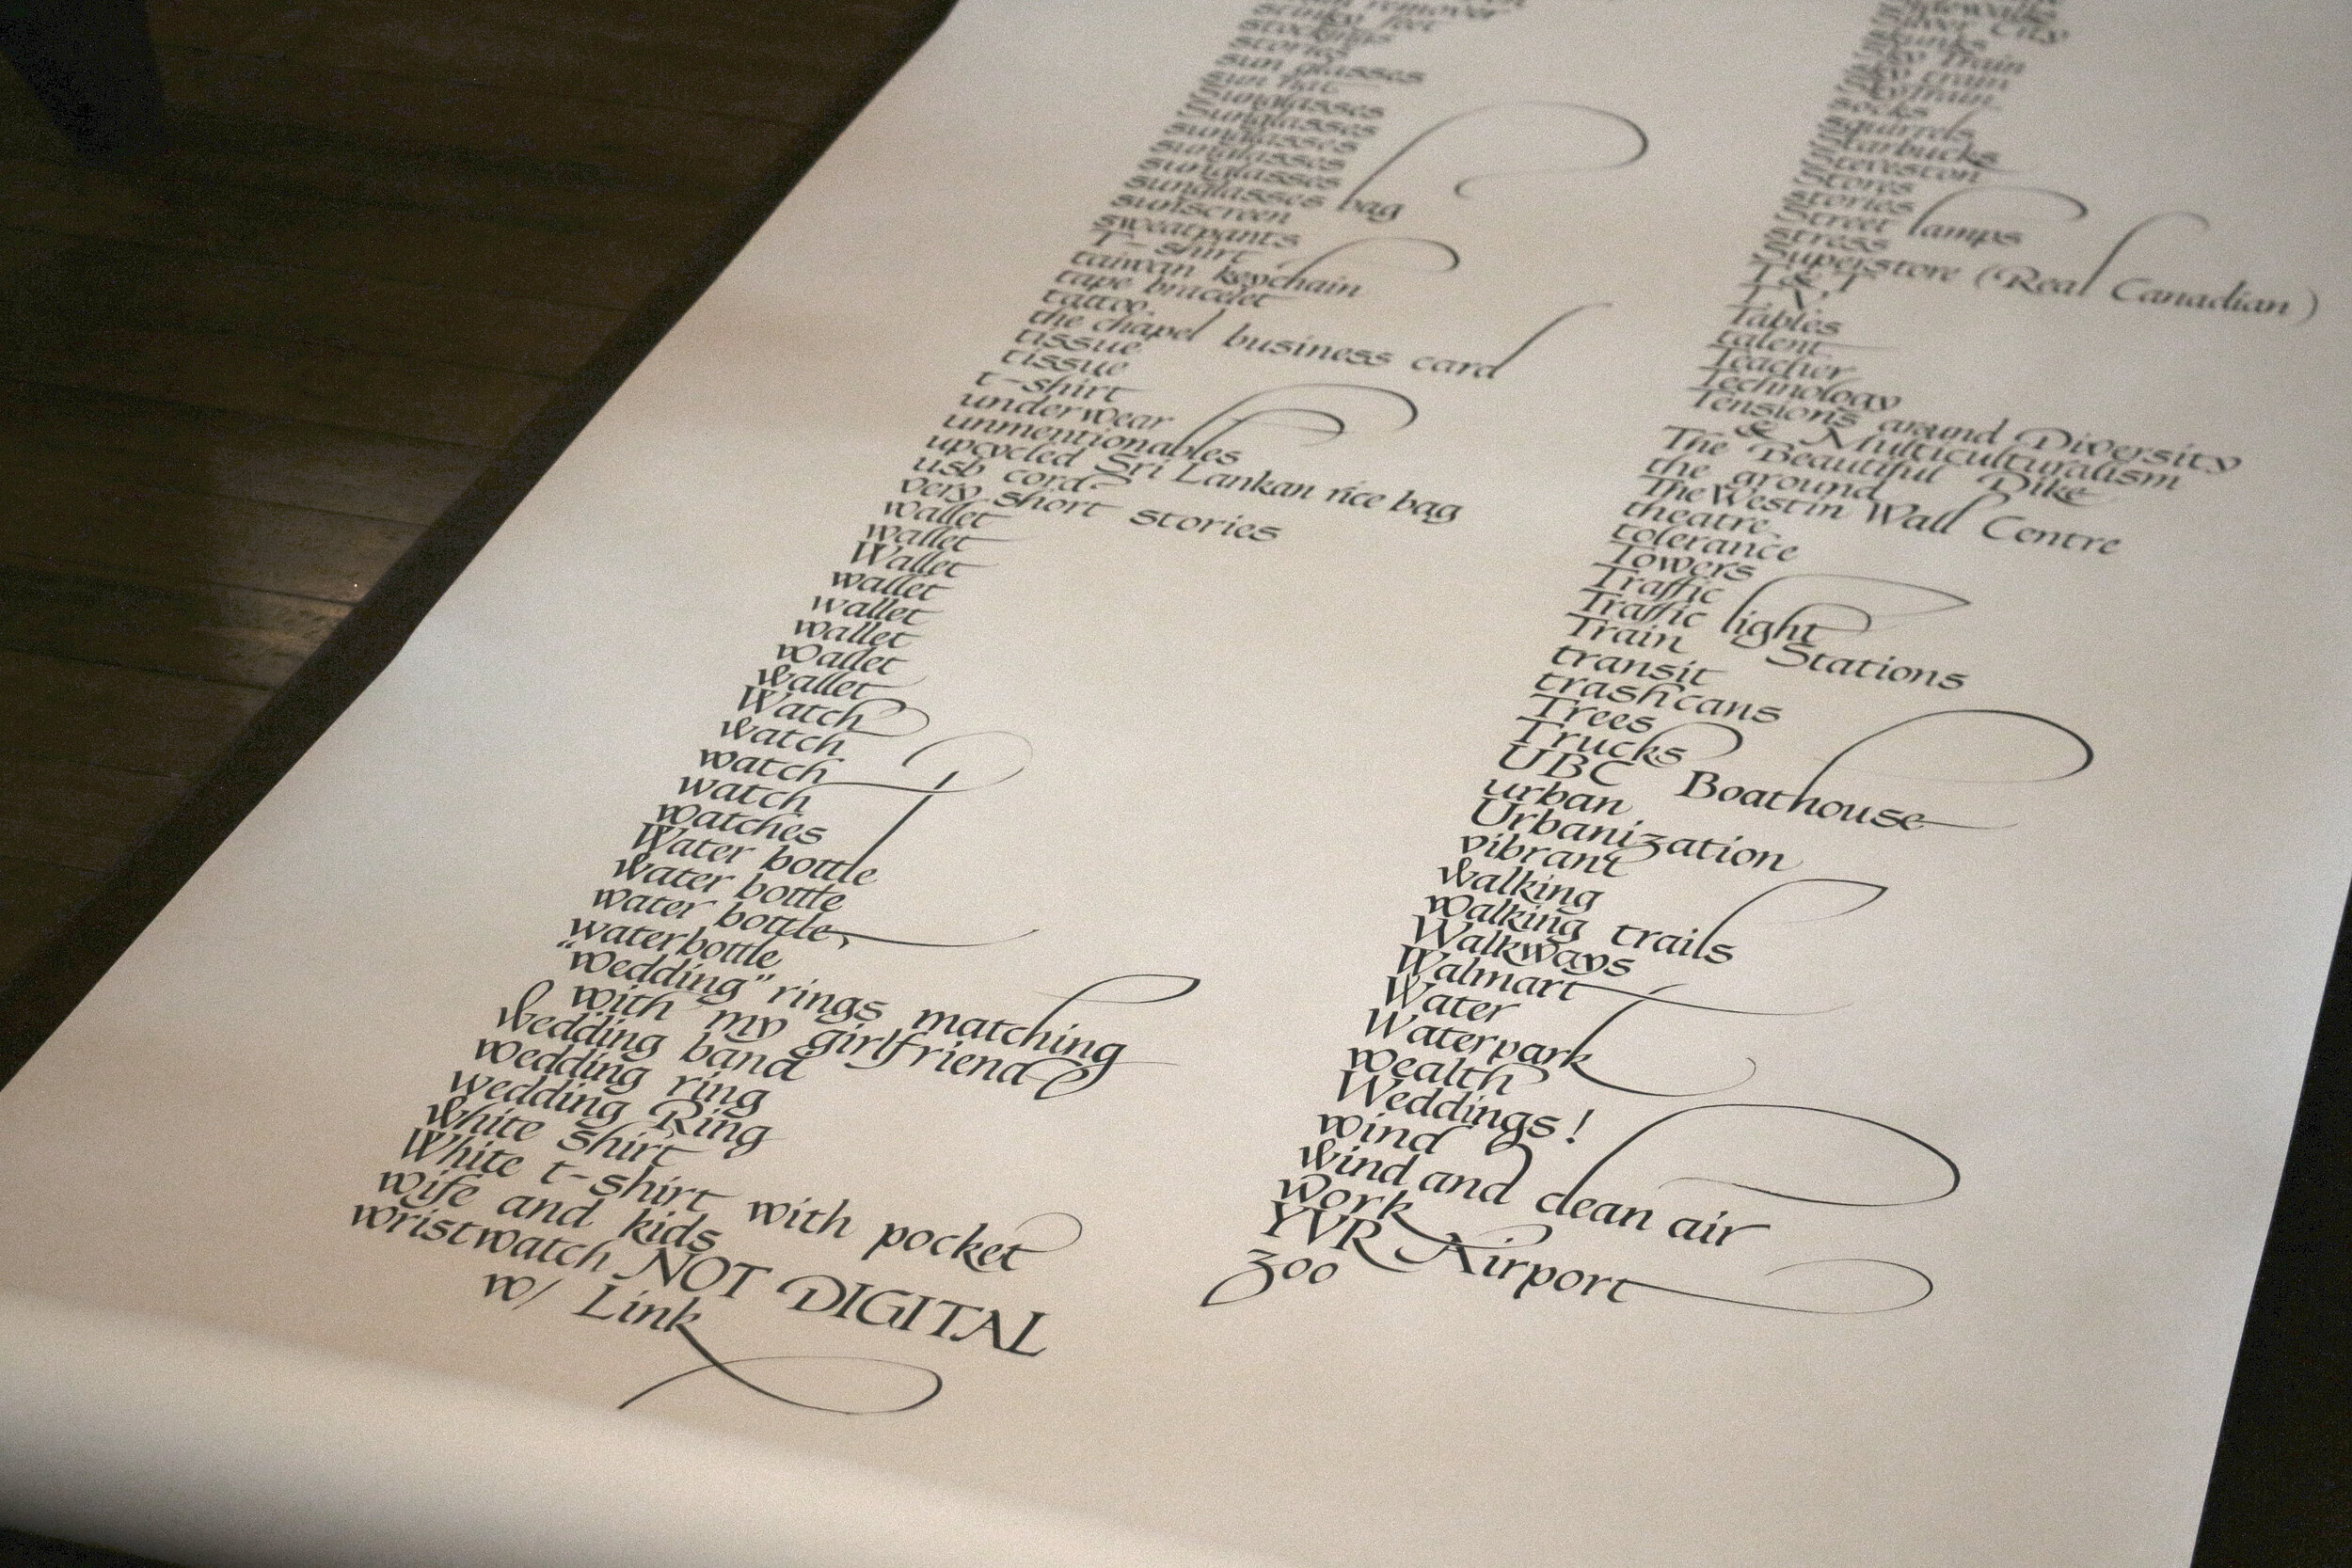 remover
stinky feet
stockings
stories
sun glasses
sun hat
Sunglasses
Sunglasses
sunglasses
sunglasses
sunglasses
sunglasses bag
sunscreen
sweatpants
T-shirt
taiwan keychain
tape bracelet
tattoo
the chapel business card
tissue
tissue
t-shirt
underwear
unmentionables
upcycled Sri Lankan rice bag
usb cord
very short stories
wallet
wallet
Wallet
wallet
wallet
wallet
wallet
wallet
Watch
watch
watch
watch
watches
Water bottle
water bottle
water bottle
waterbottle
"wedding" rings matching
with my girlfriend
wedding band
wedding ring
wedding Ring
white shirt
White t-shirt with pocket
wife and kids
wristwatch NOT DIGITAL
w/ Link
skunks
Sky Train
sky train
Skytrain
socks
squirrels
Starbucks
Steveston
Stores
stories
Street lamps
stress
Superstore (Real Canadian)
T & T
T.V.
Tables
talent
Teacher
Technology
Tensions around Diversity
& Multiculturalism
The Beautiful Dike
the ground
The Westin Wall Centre
theatre
tolerance
Towers
Traffic
Traffic light
Train Stations
transit
trashcans
Trees
Trucks
UBC Boathouse
urban
Urbanization
vibrant
walking
walking trails
Walkways
Walmart
Water
Waterpark
wealth
Weddings!
wind
wind and clean air
work
YVR Airport
zoo